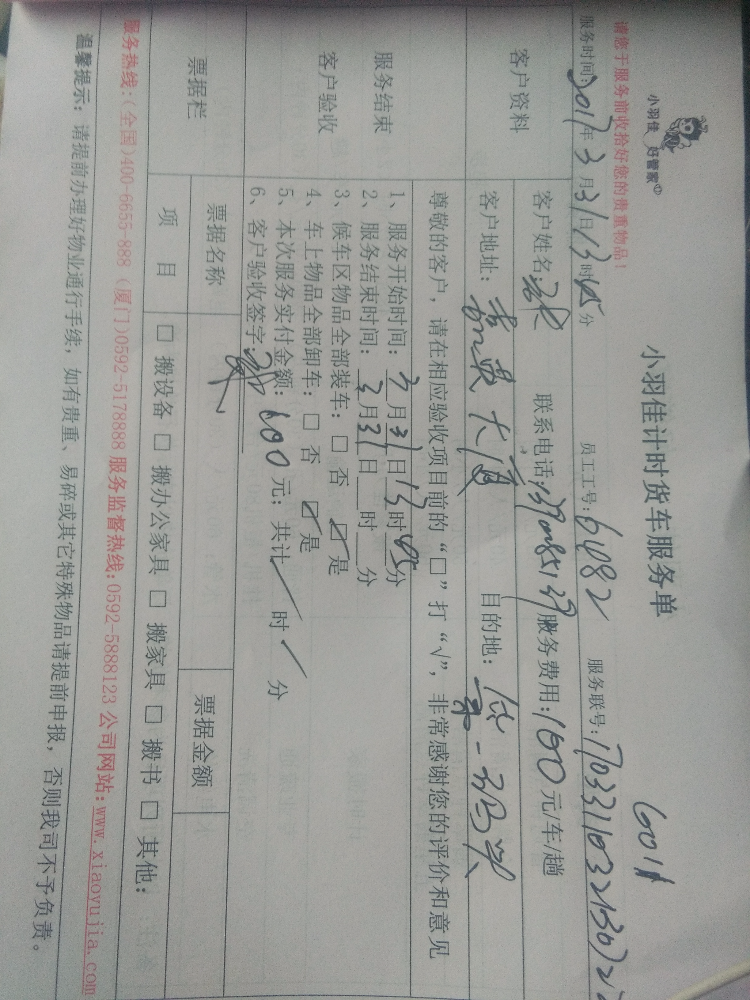 小羽佳 好管家
小羽佳计时货车服务单
6011
请您于服务前收拾好您的贵重物品！
服务时间:2017年3月31日13时45分 员工工号:61082 服务联号:
客户资料
客户姓名: 联系电话: 服务费用:100元/车/趟
客户地址: 大厦 目的地:
尊敬的客户，请在相应验收项目前的“□”打“√”，非常感谢您的评价和意见
服务结束
客户验收
1、服务开始时间: 3月31日13时45分
2、服务结束时间: 3月31日 时 分
3、候车区物品全部装车: □ 否 ☑ 是
4、车上物品全部卸车: □ 否 ☑ 是
5、本次服务实付金额: 100元; 共计 / 时 / 分
6、客户验收签字:
票据栏 票据名称 票据金额
项 目 □ 搬设备 □ 搬办公家具 □ 搬家具 □ 搬书 □ 其他:
服务热线:(全国)400-6655-888 (厦门)0592-5178888 服务监督热线:0592-5888123 公司网站:www.xiaoyujia.com
温馨提示: 请提前办理好物业通行手续，如有贵重、易碎或其它特殊物品请提前申报，否则我司不予负责。